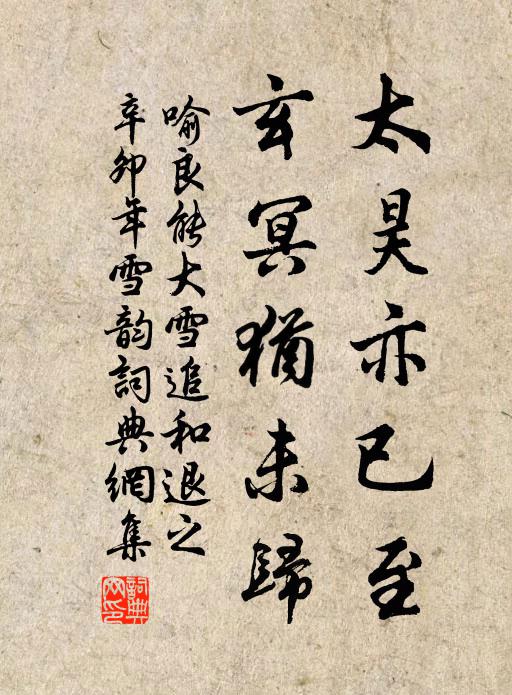 太昊亦已至
玄冥猶未歸
喻良能大雪追和退之
辛卯年雪韵詞典網集
詞典
网印